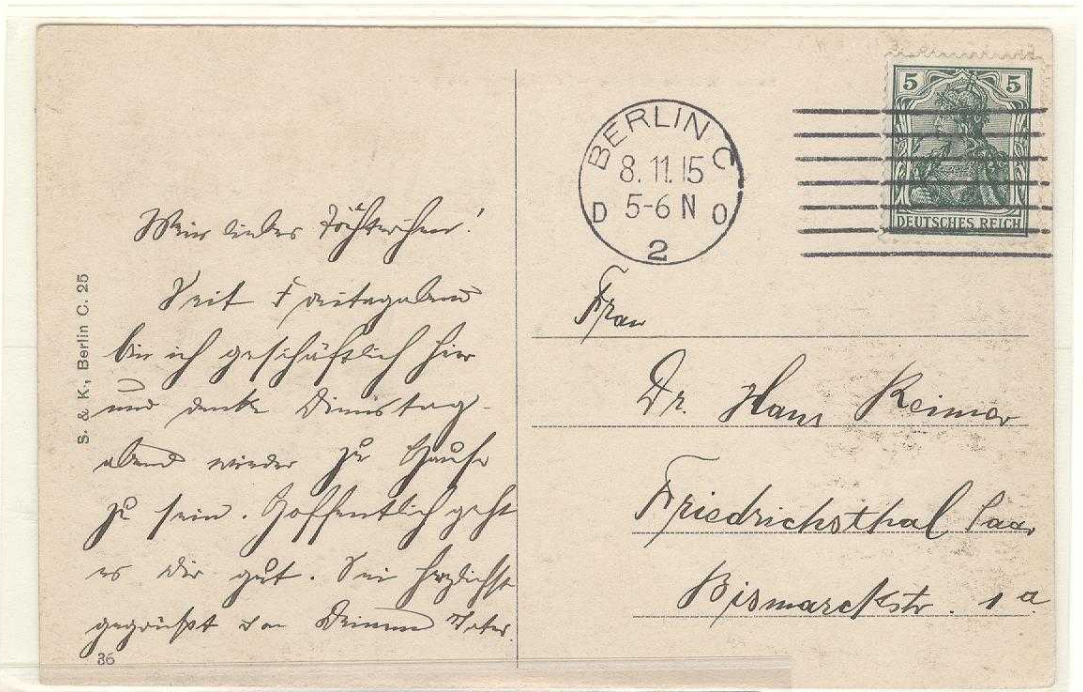 Mein liebes Töchterchen!
Seit Freitagabend
bin ich geschäftlich hier
und denke Dienstag-
abend wieder zu Hause
zu sein. Hoffentlich geht
es dir gut. Sei herzlichst
gegrüßt von Deinem Vater.
36
S. & K., Berlin C. 25
BERLIN C
8.11.15
5-6 N
D O
2
5 5
DEUTSCHES REICH
Frau
Dr. Hans Reimer
Friedrichsthal Saar
Bismarckstr. 1a